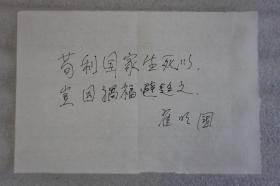 苟利国家生死以.
岂因祸福避趋之.
崔国